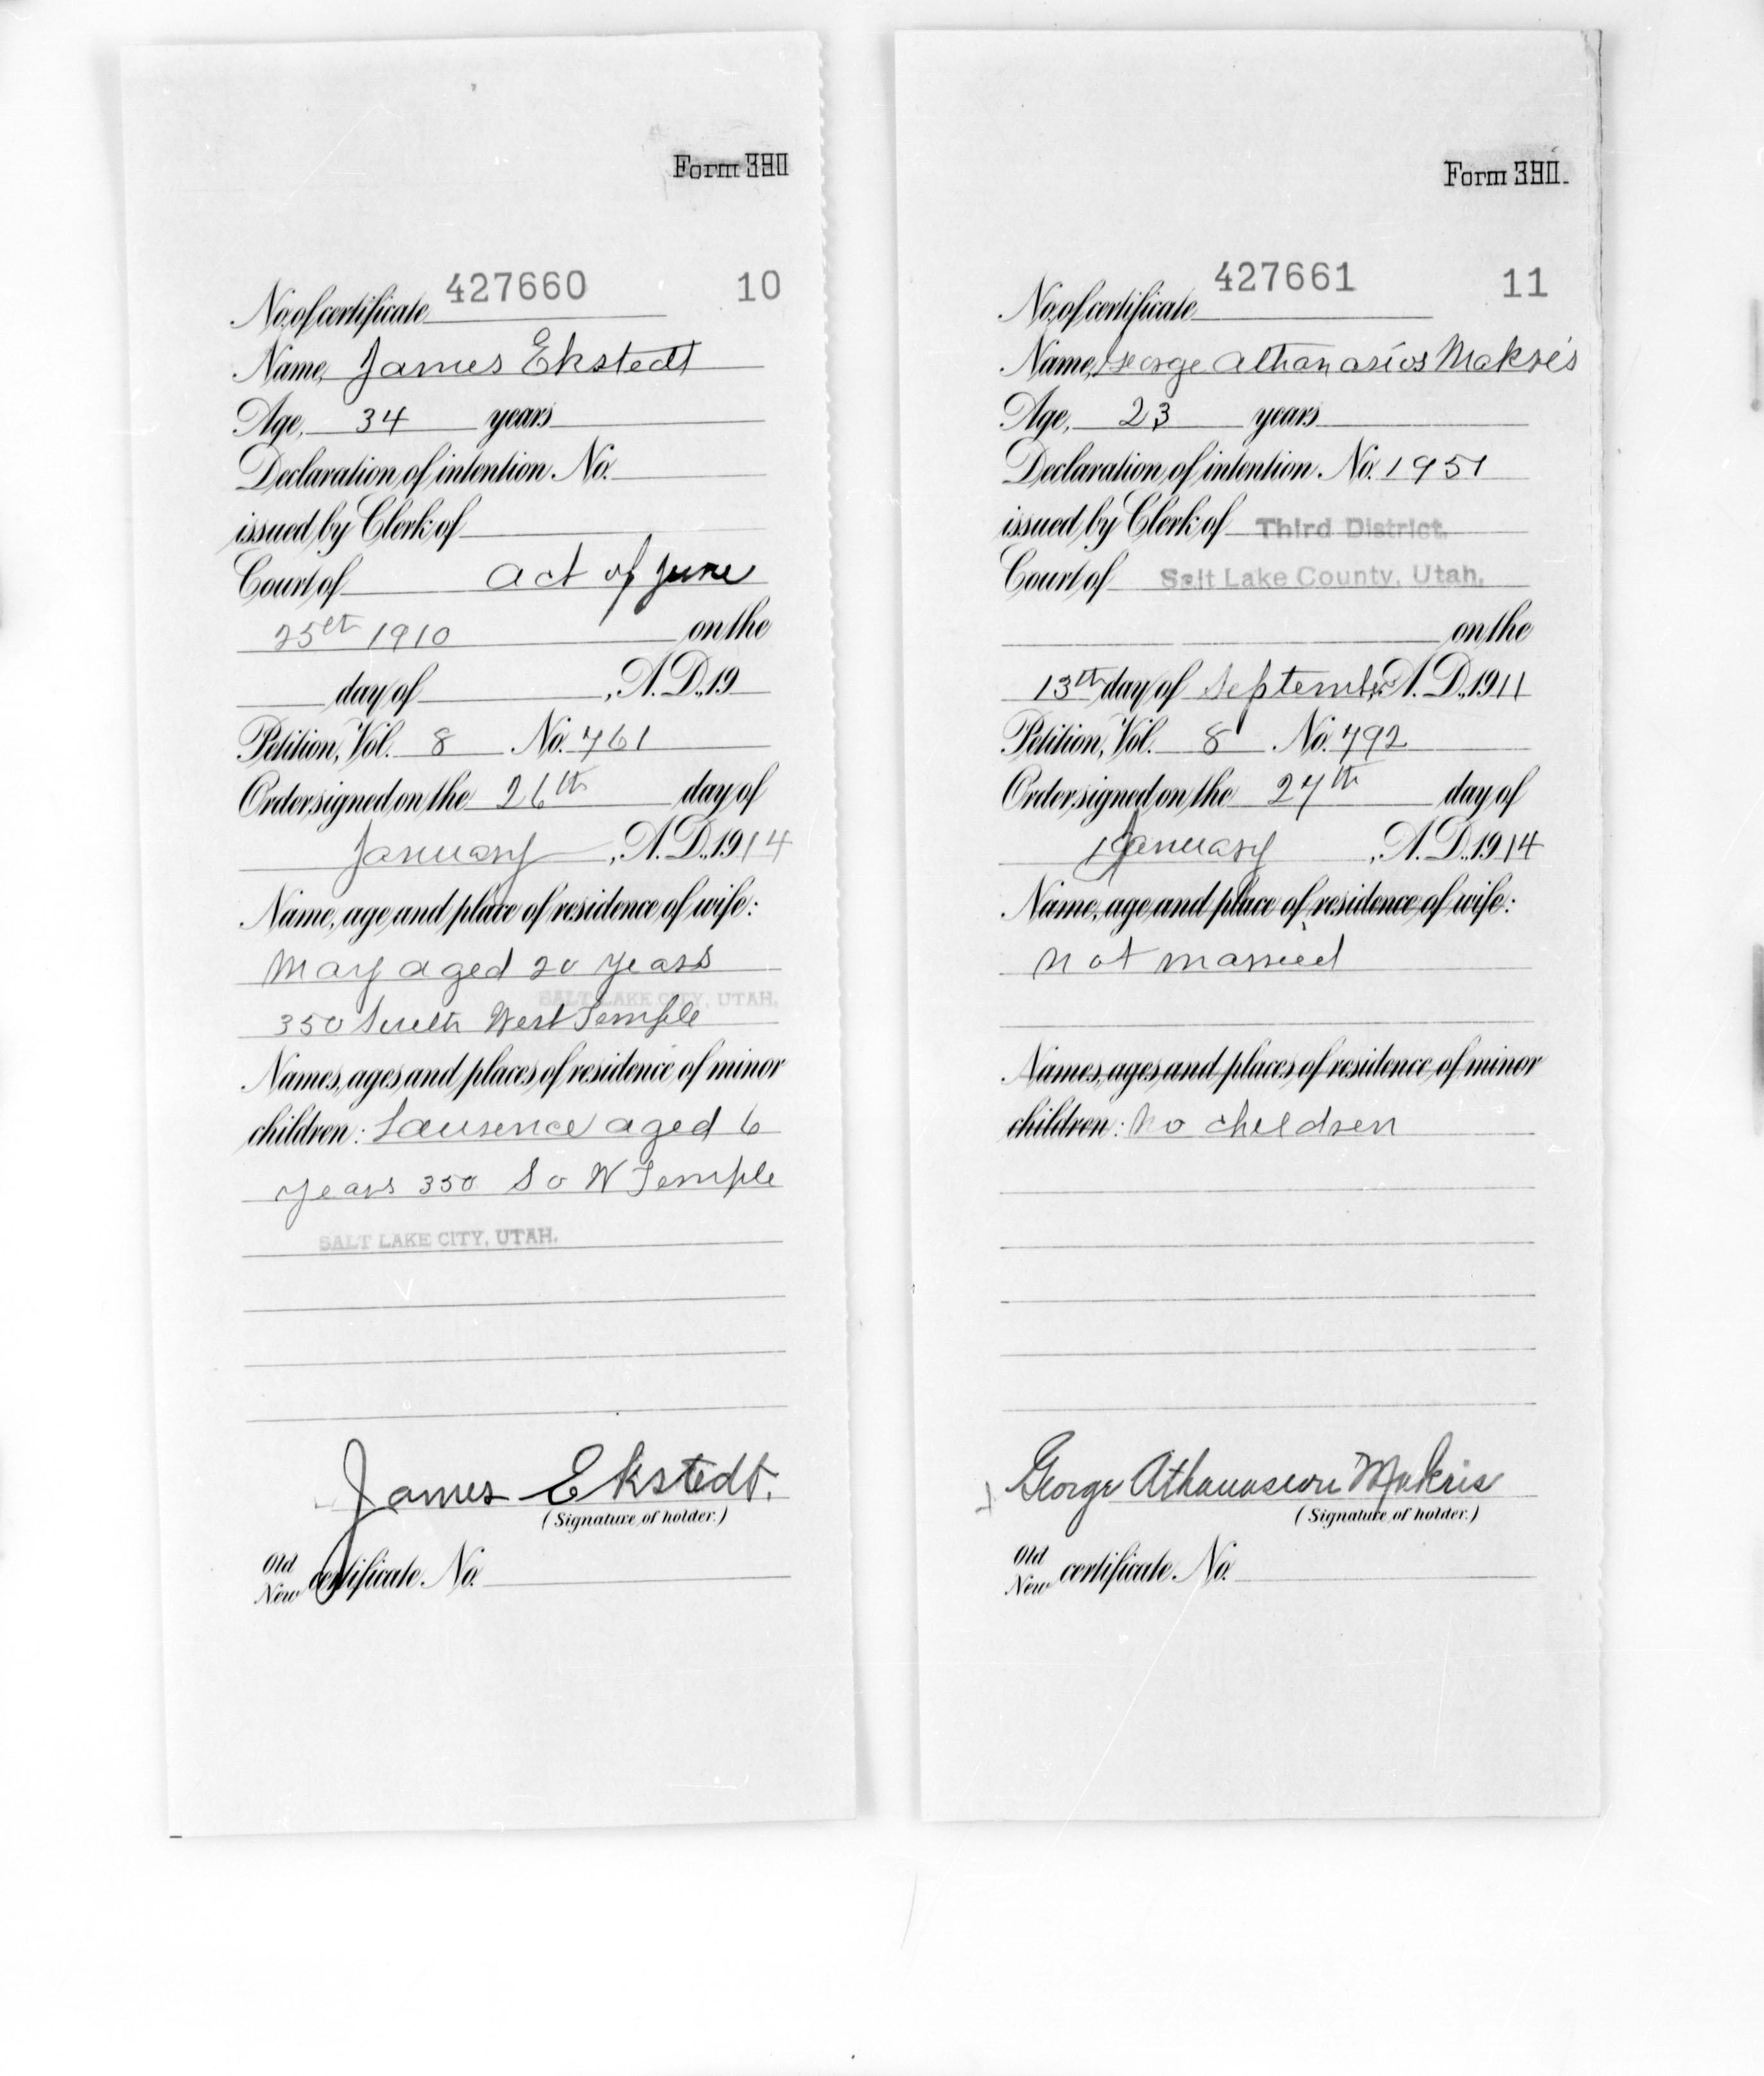 Form 330
No. of certificate 427660 10
Name, James Ekstedt
Age, 34 years
Declaration of intention. No.
issued by Clerk of
Court of act of June
25th 1910 on the
day of , A.D., 19
Petition, Vol. 8 No. 761
Order signed on the 26th day of
January , A.D., 1914
Name, age and place of residence of wife:
May aged 20 years
SALT LAKE CITY, UTAH.
350 South West Temple
Names, ages and places of residence of minor
children: Laurence aged 6
years 350 So W Temple
SALT LAKE CITY, UTAH.
James Ekstedt.
(Signature of holder.)
Old
New certificate. No.
Form 330.
No. of certificate 427661 11
Name, George Athanasios Makris
Age, 23 years
Declaration of intention. No. 1951
issued by Clerk of Third District.
Court of Salt Lake County, Utah.
on the
13th day of September A.D., 1911
Petition, Vol. 8 No. 792
Order signed on the 27th day of
January , A.D., 1914
Name, age and place of residence of wife:
not married
Names, ages and places of residence of minor
children: no children
George Athanasiou Makris
(Signature of holder.)
Old
New certificate. No.